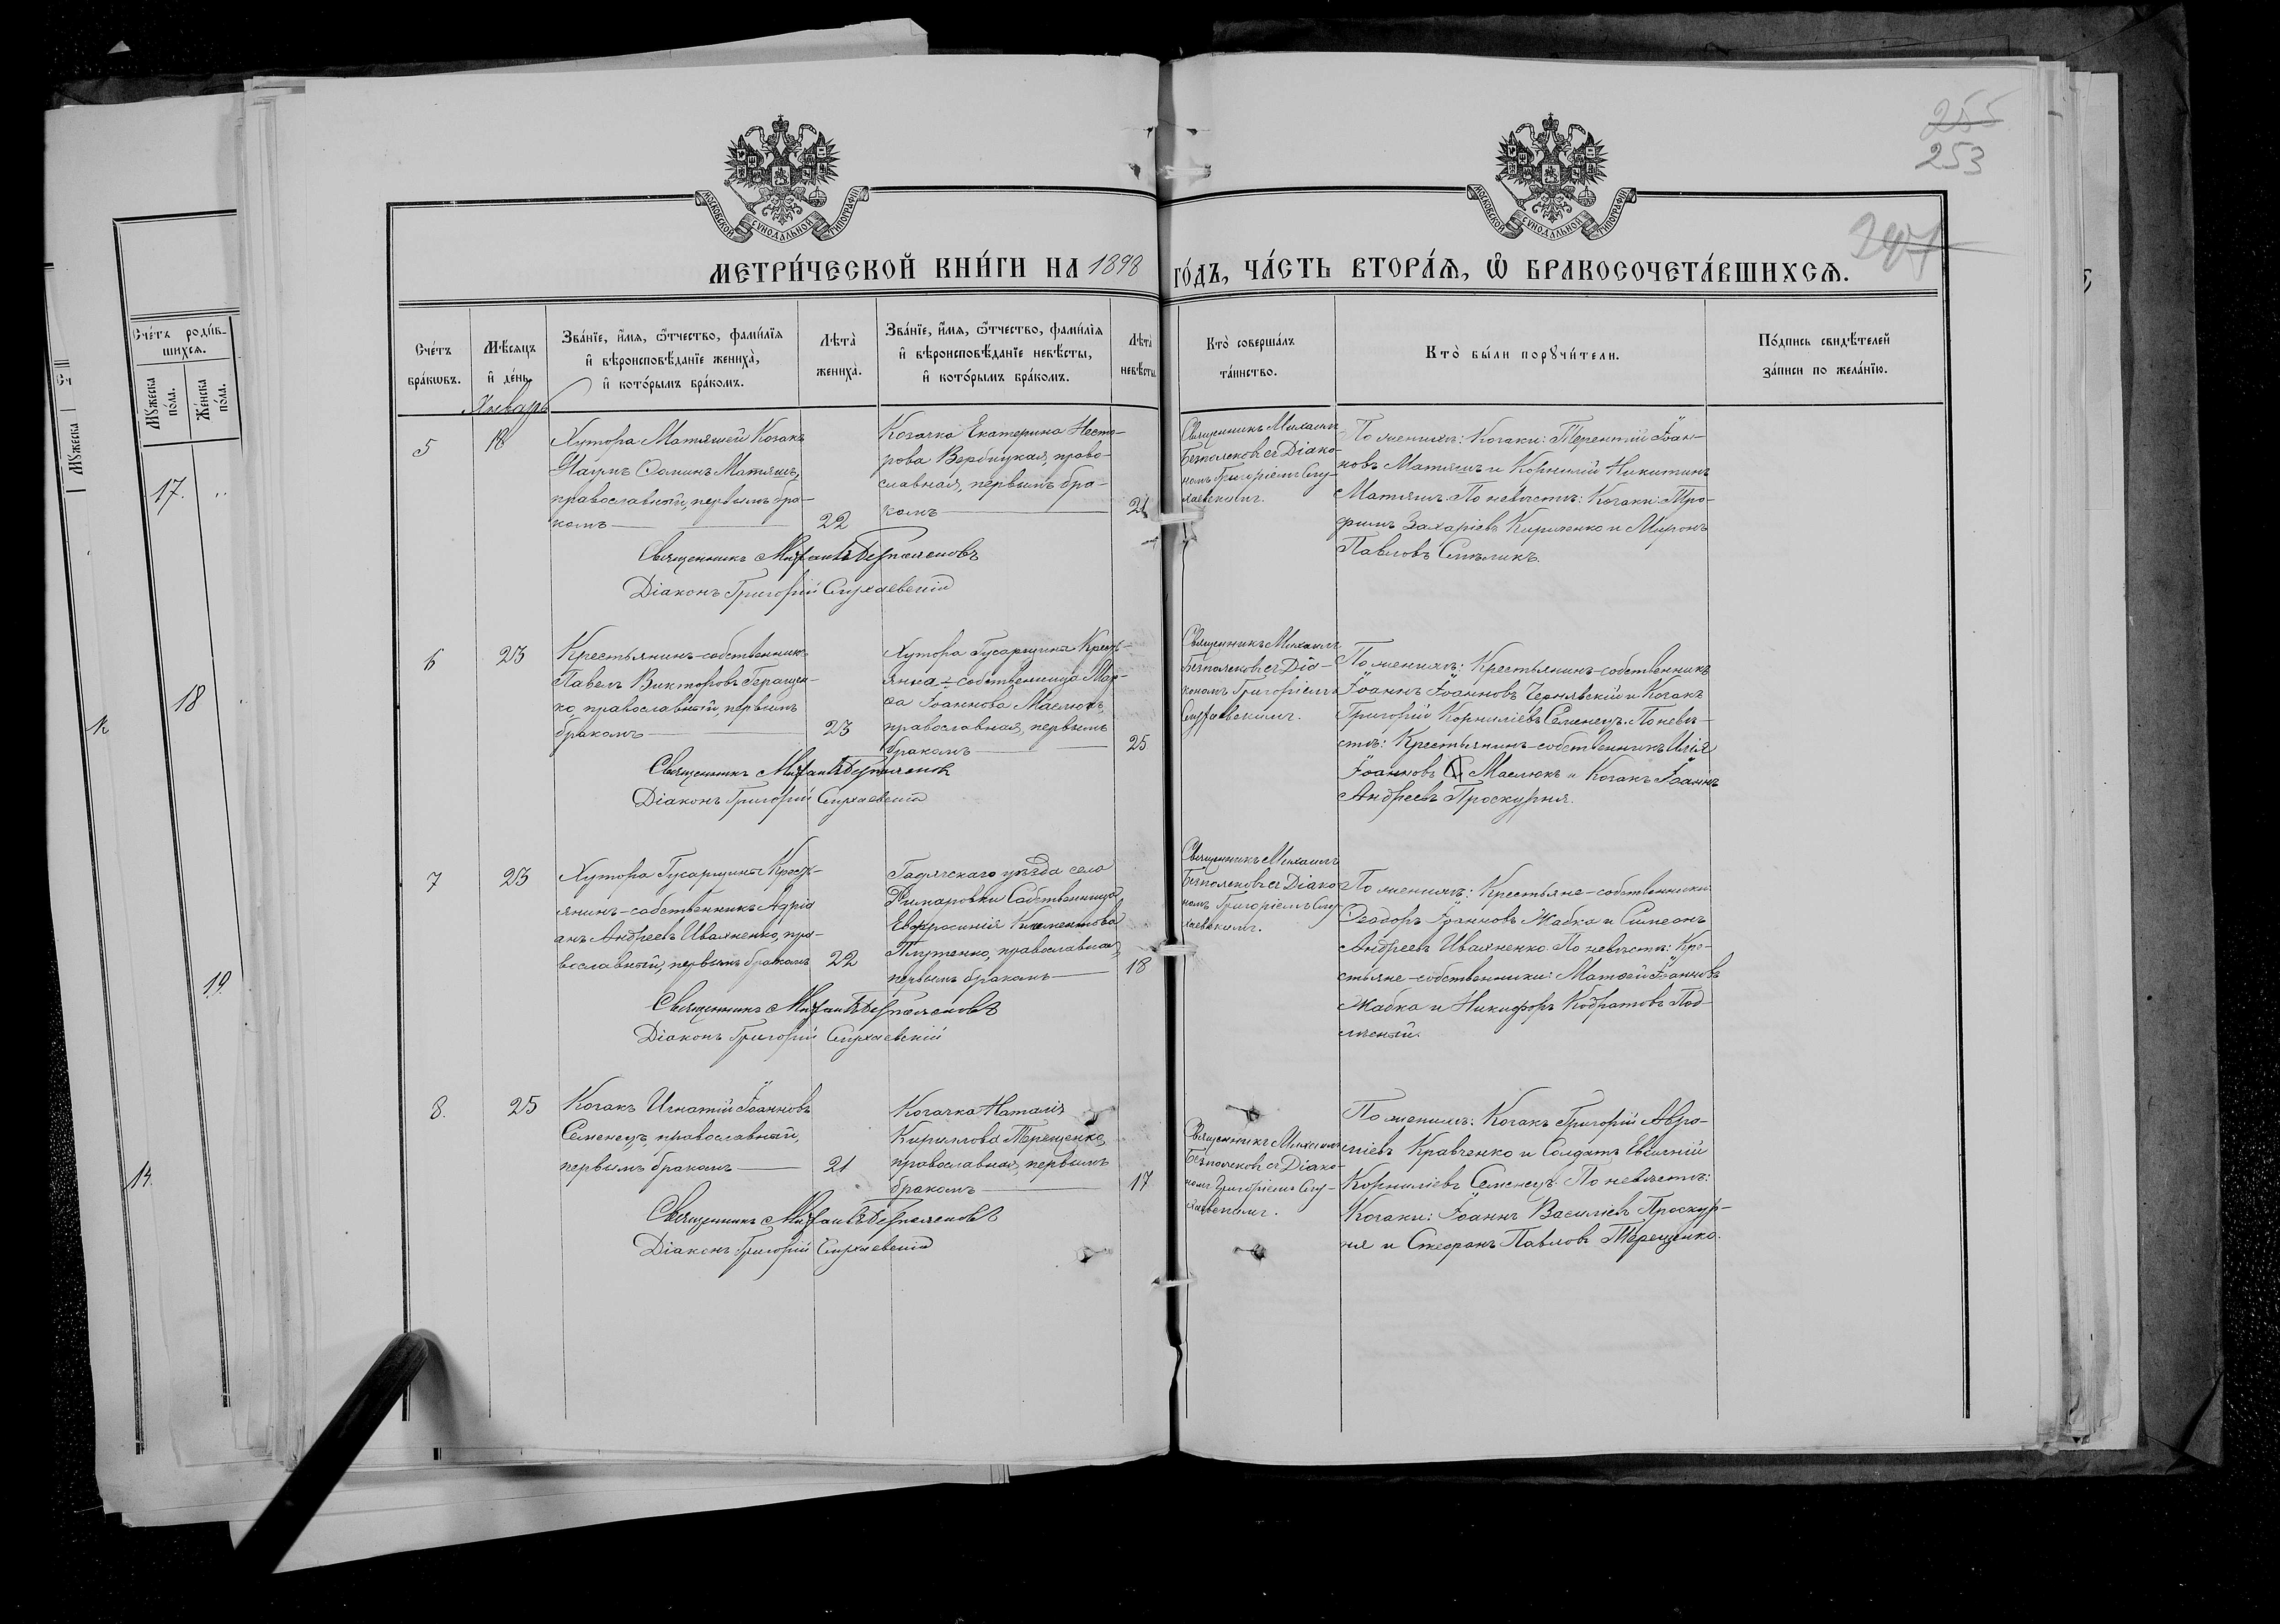 255
253
207
МОСКОВСКОЙ СѴНОДАЛЬНОЙ ТИПОГРАФІИ
МОСКОВСКОЙ СѴНОДАЛЬНОЙ ТИПОГРАФІИ
МЕТРИ́ЧЕСКОЙ КНИ́ГИ НА 1898 ГО́ДЪ, ЧА́СТЬ ВТОРА́Ѧ, Ѡ҆ БРАКОСОЧЕТА́ВШИХСѦ.
Сче́тъ бра́кѡвъ.
Мѣ́сяцъ и҆ де́нь.
Зва́нїе, и҆́мя, ѻ҆́тчество, фами́лїя
и҆ вѣроисповѣ́данїе жениха̀,
и҆ кото́рымъ бра́комъ.
Лѣта̀ жениха̀.
Зва́нїе, и҆́мя, ѻ҆́тчество, фами́лїя
и҆ вѣроисповѣ́данїе невѣ́сты,
и҆ кото́рымъ бра́комъ.
Лѣта̀ невѣ́сты.
Кто̀ соверша́лъ та́инство.
Кто̀ бы́ли порꙋчи́тели.
По́дпись свидѣ́телей за́писи по жела́нїю.
Январь
5
18
Хутора Матяшей Козакъ
Наумъ Ѳоминъ Матяшъ,
православный, первымъ бра-
комъ
22
Козачка Екатерина Несто-
рова Вербицкая, право-
славная, первымъ бра-
комъ
21
Священникъ Михаилъ
Безпалековъ съ Діако-
номъ Григоріемъ Слу-
хаевскимъ.
По женихѣ: Козаки: Терентій Іоан-
новъ Матяшъ и Корнилій Никитинъ
Матяшъ. По невѣстѣ: Козаки: Тро-
фимъ Захаріевъ Кириленко и Миронъ
Павловъ Смѣликъ.
Священникъ Михаилъ Безпалековъ
Діаконъ Григорій Слухаевскій
6
23
Крестьянинъ-собственникъ
Павелъ Викторовъ Геращен-
ко, православный, первымъ
бракомъ
23
Хутора Гусарщина Кресть-
янка-собственница Мар-
ѳа Іоаннова Маслюкъ,
православная, первымъ
бракомъ
25
Священникъ Михаилъ
Безпалековъ съ Діа-
кономъ Григоріемъ
Слухаевскимъ.
По женихѣ: Крестьянинъ-собственникъ
Іоаннъ Іоанновъ Чернявскій и Козакъ
Григорій Корниліевъ Семенецъ. По невѣ-
стѣ: Крестьянинъ-собственникъ Илія
Іоанновъ Маслюкъ и Козакъ Іоаннъ
Андреевъ Проскурня.
Священникъ Михаилъ Безпалековъ
Діаконъ Григорій Слухаевскій
7
23
Хутора Гусарщина Кресть-
янинъ-собственникъ Адрі-
анъ Андреевъ Ивахненко, пра-
вославный, первымъ бракомъ
22
Гадячскаго уѣзда села
Римаровки Собственница
Евфросинія Климентова
православная,
первымъ бракомъ
18
Священникъ Михаилъ
Безпалековъ съ Діако-
номъ Григоріемъ Слу-
хаевскимъ.
По женихѣ: Крестьяне-собственники:
Ѳеодоръ Іоанновъ Жабка и Симеонъ
Андреевъ Ивахненко. По невѣстѣ: Кре-
стьяне-собственники: Матѳей Іоанновъ
Жабка и Никифоръ Кодратовъ Под-
лѣсный.
Священникъ Михаилъ Безпалековъ
Діаконъ Григорій Слухаевскій
8.
25
Козакъ Игнатій Іоанновъ
Семенецъ, православный,
первымъ бракомъ
21
Козачка Наталія
Кириллова Терещенко,
православная, первымъ
бракомъ
17
Священникъ Михаилъ
Безпалековъ съ Діако-
номъ Григоріемъ Слу-
хаевскимъ.
По женихѣ: Козакъ Григорій Авра-
міевъ Кравченко и Солдатъ Евфимій
Корниліевъ Семенецъ. По невѣстѣ:
Козаки: Іоаннъ Василіевъ Проскур-
ня и Стефанъ Павловъ Терещенко.
Священникъ Михаилъ Безпалековъ
Діаконъ Григорій Слухаевскій
Сче́тъ роди́в-
шихся.
Мꙋ́жеска по́ла.
Же́нска по́ла.
17.
18
19.
14.